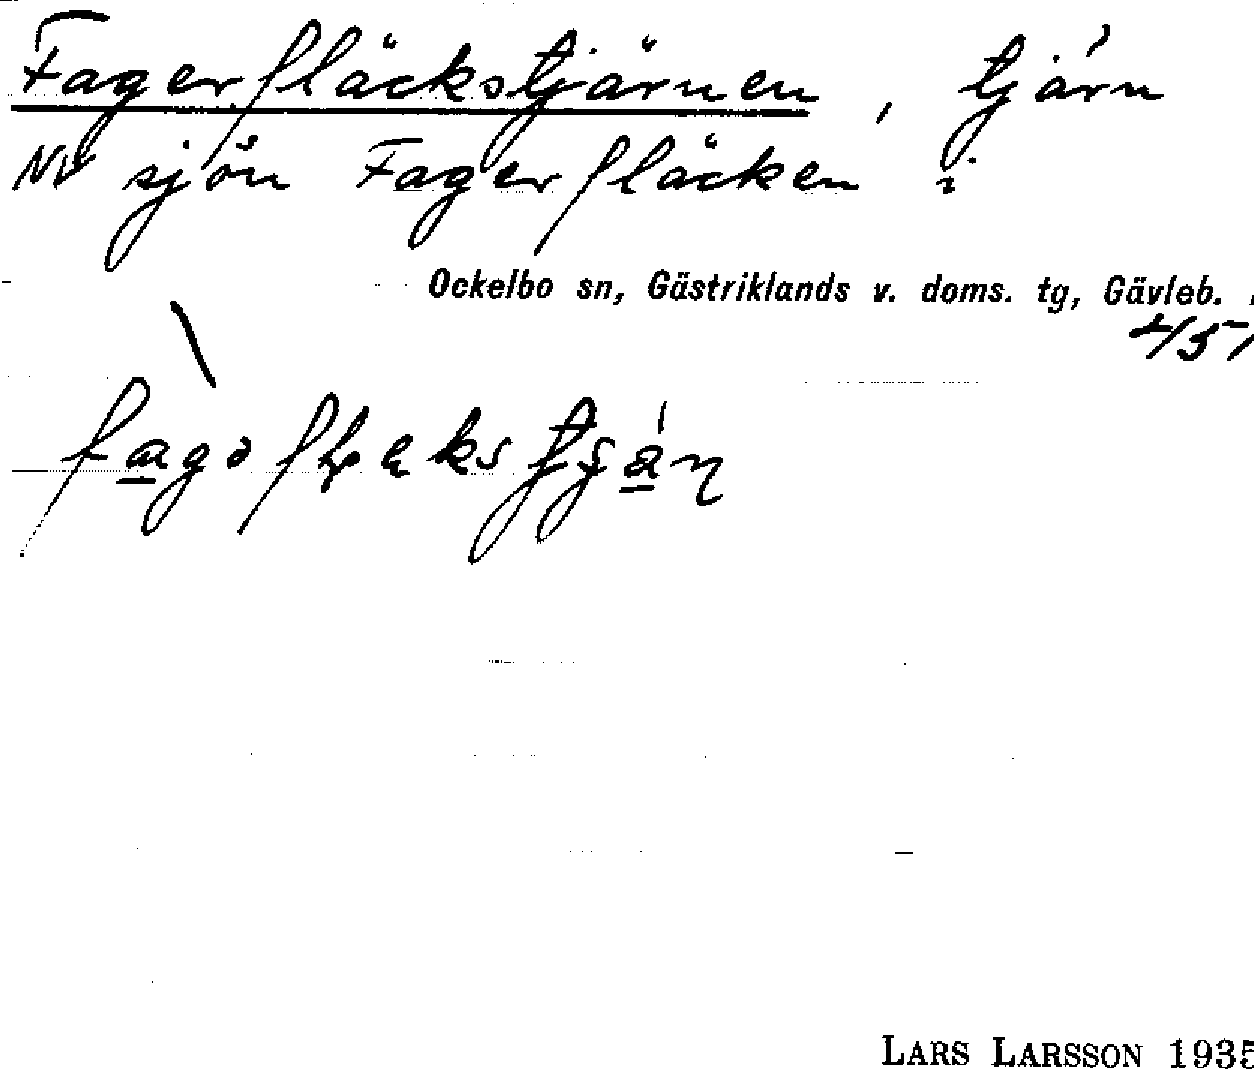 Fagerfläckstjärnen, tjärn
NV sjön Fagerfläcken i
Ockelbo sn, Gästriklands v. doms. tg, Gävleb.
LARS LARSSON 1935